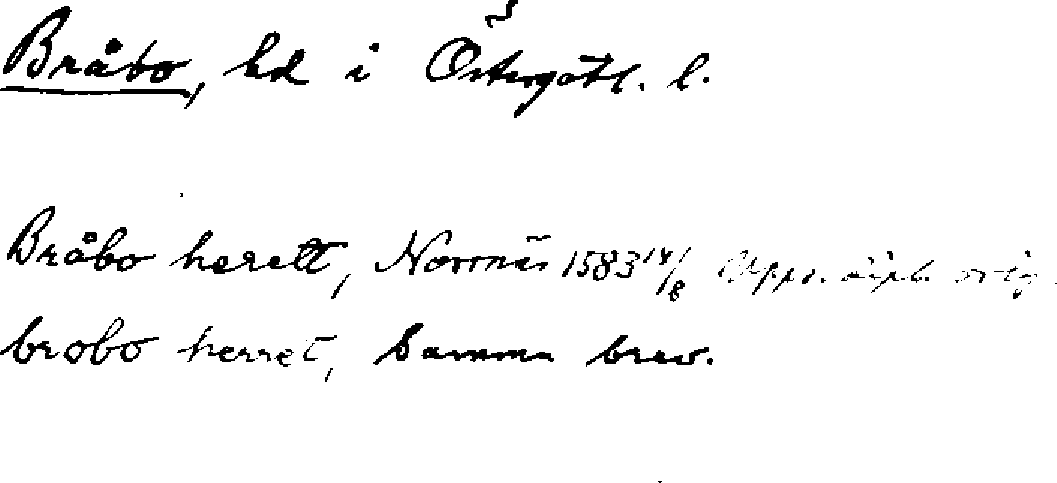 Bråbo, hd i Östergötl. l.
Bråbo herett, Norrnäs 1583 14/8 Upps. dipl. orig.
brobo herret, Samma brev.